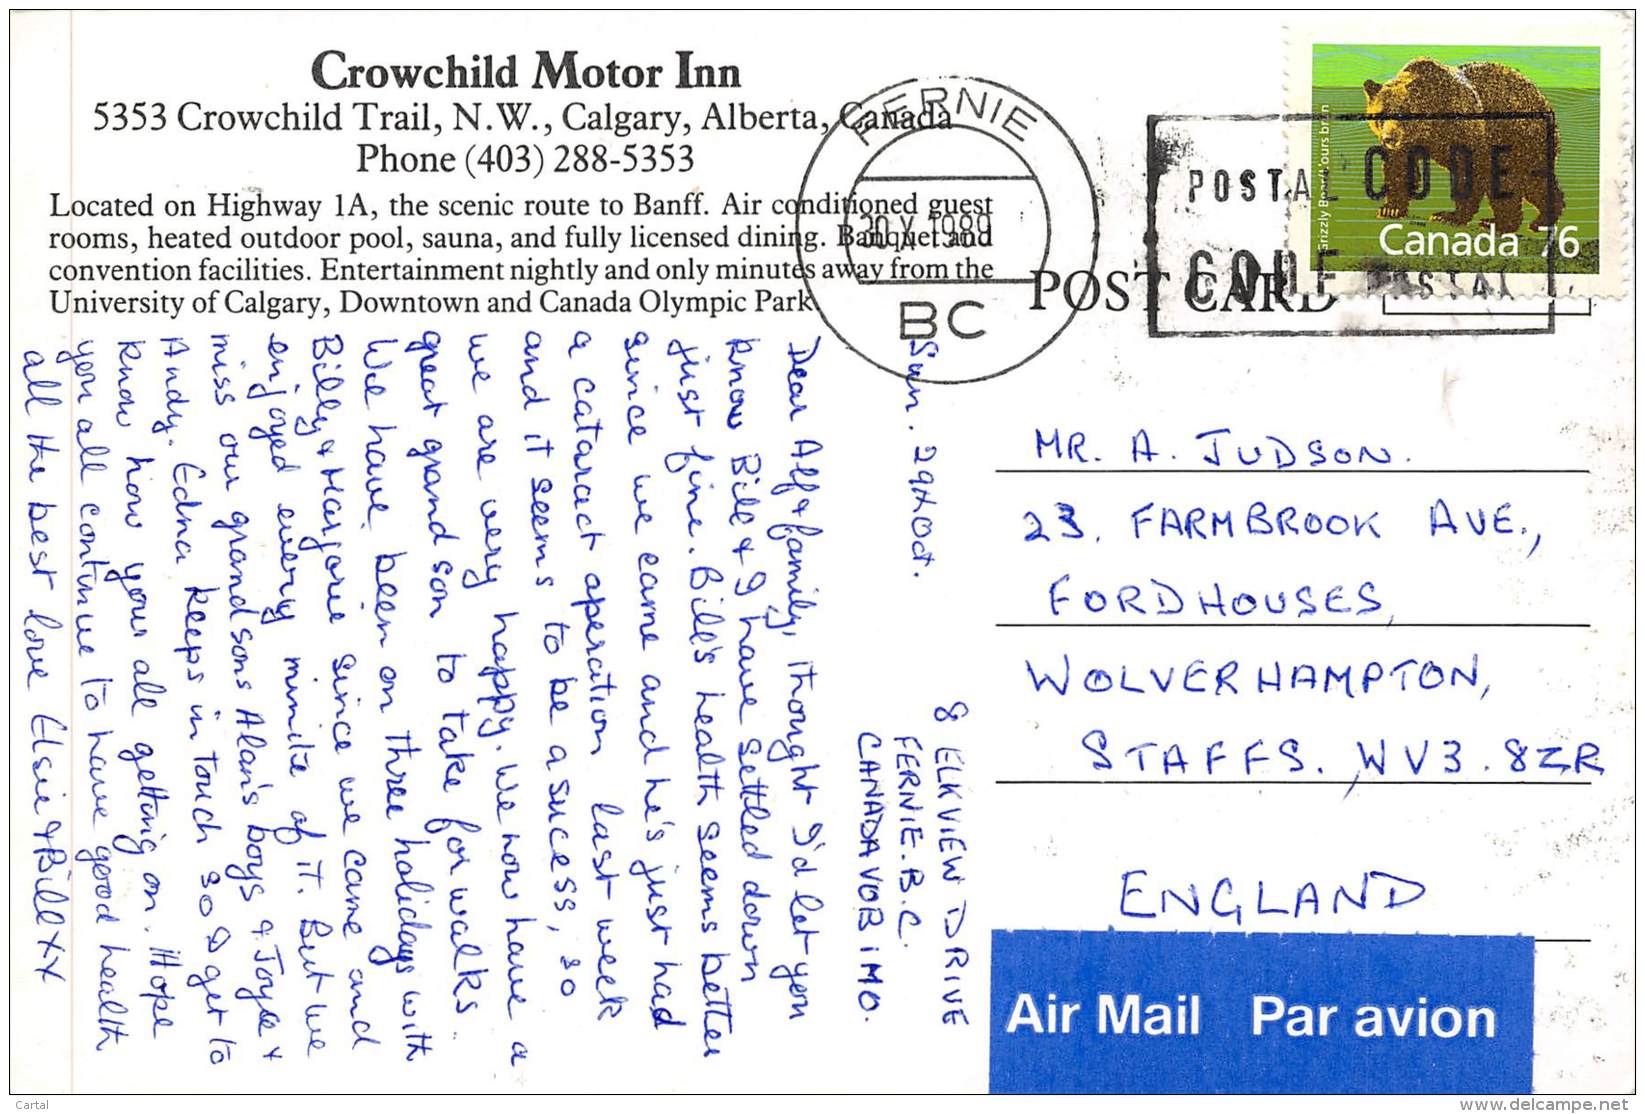 Crowchild Motor Inn
5353 Crowchild Trail, N.W., Calgary, Alberta, Canada
Phone (403) 288-5353
Located on Highway 1A, the scenic route to Banff. Air conditioned guest
rooms, heated outdoor pool, sauna, and fully licensed dining. Banquet and
convention facilities. Entertainment nightly and only minutes away from the
University of Calgary, Downtown and Canada Olympic Park
POST CARD
FERNIE
30 X 1989
BC
POSTAL CODE
CODE POSTAL
Grizzly Bear/L'ours brun
Canada 76
8 ELKVIEW DRIVE
FERNIE. B.C.
CANADA V0B 1M0.
Sun. 29th Oct.
Dear Alf & family, thought I'd let you
know Bill & I have settled down
just fine. Bill's health seems better
since we came and he's just had
a cataract operation last week
and it seems to be a sucess, so
we are very happy. We now have a
great grandson to take for walks.
We have been on three holidays with
Billy & Marjorie since we came and
enjoyed every minite of it. But we
miss our grandsons Alan's boys & Joyce &
Andy. Edna keeps in touch so I get to
know how your all getting on. Hope
you all continue to have good health
all the best love Elsie & Bill XX
MR. A. JUDSON.
23. FARMBROOK AVE.,
FORDHOUSES,
WOLVERHAMPTON,
STAFFS. WV3. 8ZR
ENGLAND
Air Mail Par avion
Cartal
www.delcampe.net